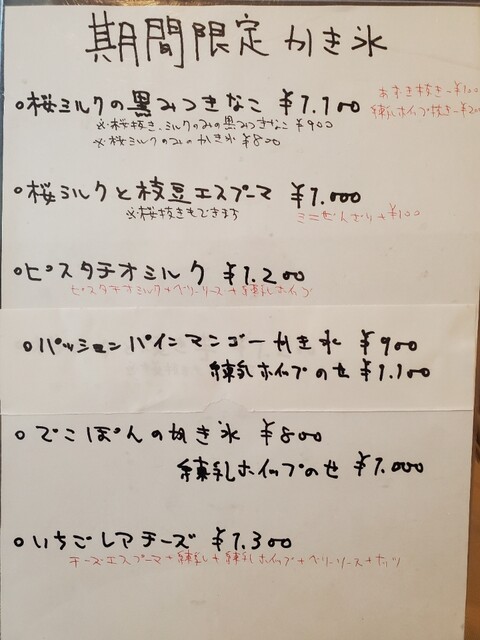 期間限定 かき氷
○桜ミルクの黒みつきなこ ¥1.100
あずき抜き-¥100
練乳ホイップ抜き-¥200
※桜抜き、ミルクのみの黒みつきなこ ¥900
※桜ミルクのみのかき氷 ¥800
○桜ミルクと枝豆エスプーマ ¥1.000
※桜抜きもできます
ミニぜんざい+¥100
○ピスタチオミルク ¥1.200
ピスタチオミルク+ベリーソース+練乳ホイップ
○パッションパインマンゴーかき氷 ¥900
練乳ホイップのせ ¥1.100
○でこぽんのかき氷 ¥800
練乳ホイップのせ ¥1.000
○いちごレアチーズ ¥1.300
チーズエスプーマ+練乳+練乳ホイップ+ベリーソース+ナッツ